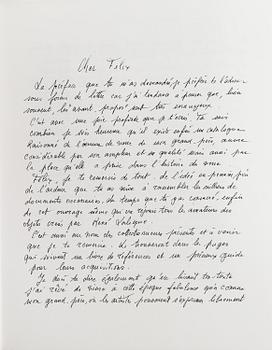 Cher Félix
La préface que tu m'as demandée, je préfère te l'adresser
sous forme de lettre car j'ai tendance à penser que, bien
souvent, les "avant-propos" sont très ennuyeux.
C'est avec une joie profonde que je t'écris. Tu sais
combien je suis heureux qu'il existe enfin un catalogue
Raisonné de l'œuvre de verre de mon grand-père, œuvre
considérable par son ampleur et sa qualité ainsi que par
la place qu'elle a prise dans l'histoire du verre
Félix, je te remercie de tout, de l'idée en premier, puis
de l'ardeur que tu as mise à rassembler les milliers de
documents nécessaires, du temps que tu as consacré, enfin
de cet ouvrage même qui va réjouir tous les amateurs des
objets créés par René Lalique.
C'est aussi au nom des collectionneurs présents et à venir
que je te remercie. Ils trouveront dans les pages
qui suivent un livre de références et un précieux guide
pour leurs acquisitions.
Je dois te dire également qu'en lisant ton texte
j'ai rêvé de vivre à cette époque fabuleuse qu'a connue
mon grand-père, où les artistes pouvaient s'exprimer librement